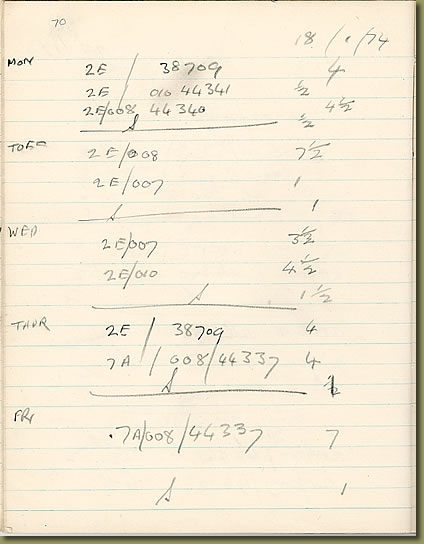 70
18/1/74
MON 2E / 38709 4
2E 010 44341 ½
2E/008 44340 4½
S ½
TUES 2E/008 7½
2E/007 1
S 1
WED 2E/007 3½
2E/010 4½
S 1½
THUR 2E / 38709 4
7A / 008/44337 4
S
FRI 7A/008/44337 7
S 1